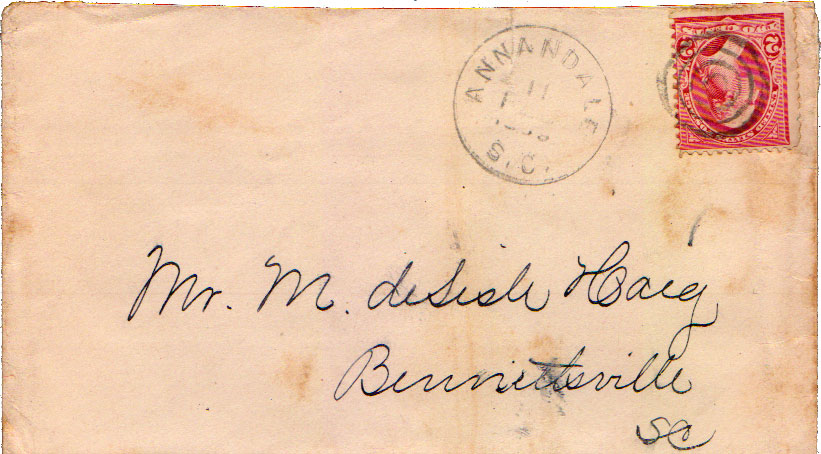 ANNANDALE
11
S.C.
2 2
Mr. M. deLisle Haig
Bennettsville
SC